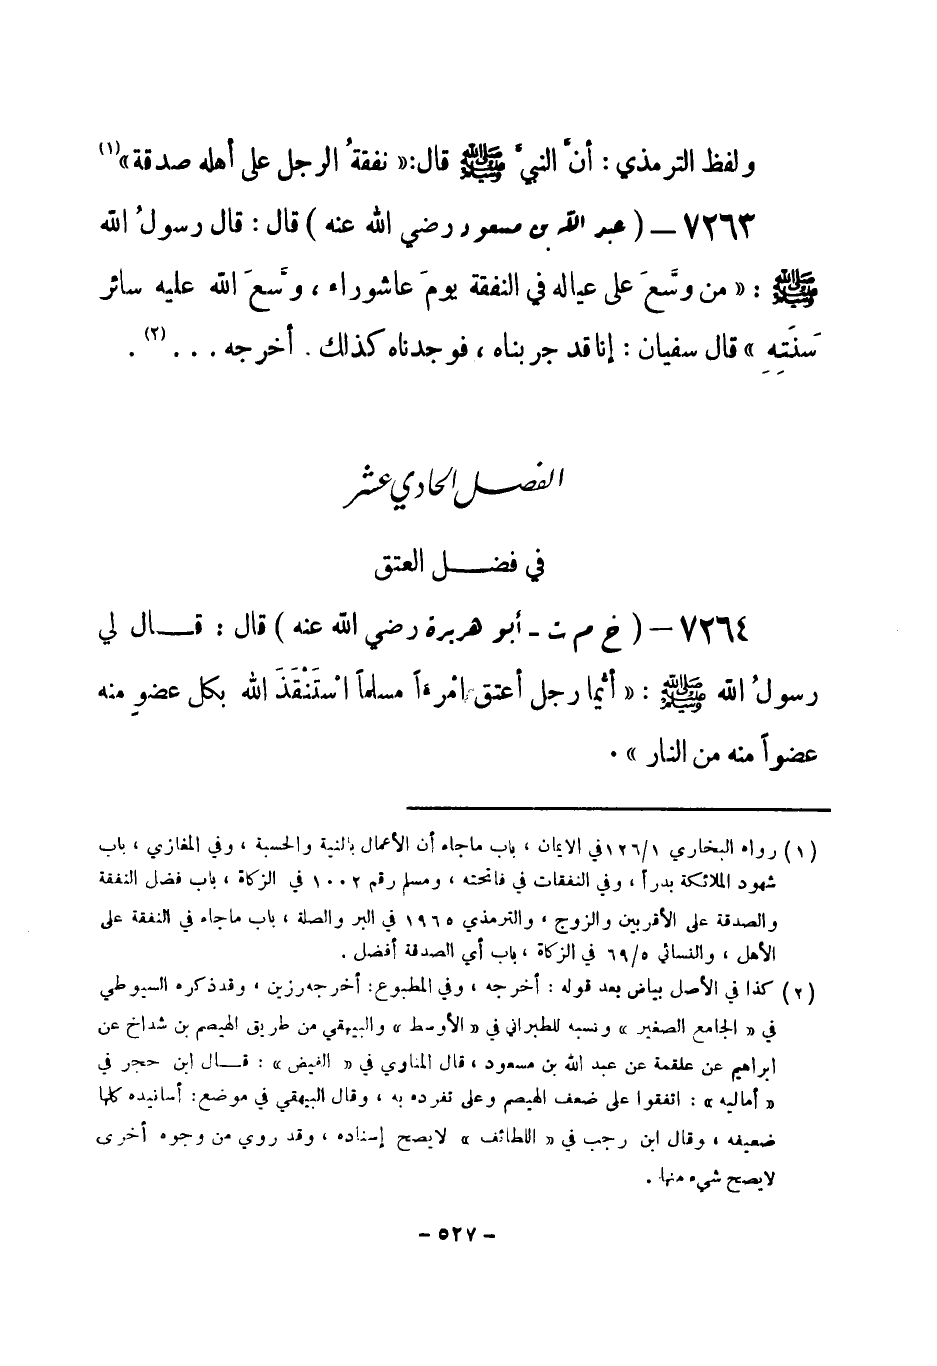 ولفظ الترمذي : أنَّ النبيَّ ﷺ قال:« نفقةُ الرجل على أهله صدقة»(١)
٧٢٦٣ – ( عبد الله بن مسعود رضي الله عنه ) قال : قال رسولُ الله
ﷺ : « من وسَّعَ على عياله في النفقة يومَ عاشوراء ، وسَّعَ الله عليه سائر
سَنَتِهِ » قال سفيان : إنا قد جربناه ، فوجدناه كذلك . أخرجه . . . (٢) .
الفصل الحادي عشر
في فضل العتق
٧٢٦٤ – ( خ م ت - أبو هريرة رضي الله عنه ) قال : قال لي
رسولُ الله ﷺ : « أيُّما رجل أعتق امْرءاً مسلماً اسْتَنْقَذَ الله بكل عضوٍ منه
عضواً منه من النار » .
(١) رواه البخاري ١٢٦/١ في الايمان ، باب ماجاء أن الأعمال بالنية والحسبة ، وفي المغازي ، باب
شهود الملائكة بدراً ، وفي النفقات في فاتحته ، ومسلم رقم ١٠٠٢ في الزكاة ، باب فضل النفقة
والصدقة على الأقربين والزوج ، والترمذي ١٩٦٥ في البر والصلة ، باب ماجاء في النفقة على
الأهل ، والنسائي ٦٩/٥ في الزكاة ، باب أي الصدقة أفضل .
(٢) كذا في الأصل بياض بعد قوله : أخرجه ، وفي المطبوع: أخرجه رزين ، وقد ذكره السيوطي
في « الجامع الصغير » ونسبه للطبراني في « الأوسط » والبيهقي من طريق الهيصم بن شداخ عن
ابراهيم عن علقمة عن عبد الله بن مسعود ، قال المناوي في « الفيض » : قال ابن حجر في
« أماليه » : اتفقوا على ضعف الهيصم وعلى تفرده به ، وقال البيهقي في موضع: أسانيده كلها
ضعيفه ، وقال ابن رجب في « اللطائف » لايصح إسناده ، وقد روي من وجوه أخرى
لايصح شيء منها .
- ٥٢٧ -